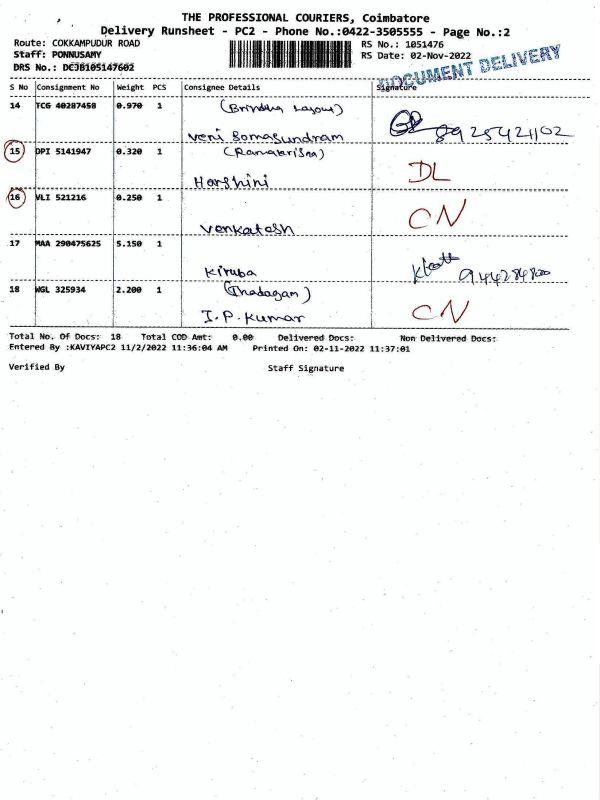 THE PROFESSIONAL COURIERS, Coimbatore
Delivery Runsheet - PC2 - Phone No.:0422-3505555 - Page No.:2
Route: COKKAMPUDUR ROAD
RS No.: 1051476
Staff: PONNUSAMY
RS Date: 02-Nov-2022
DRS No.: DCJB105147602
DOCUMENT DELIVERY
S No Consignment No Weight PCS Consignee Details Signature
14 TCG 40287458 0.970 1 (Brindha Layout)
Veni Somasundram 8925421102
15 DPI 5141947 0.320 1 (Ramakrisna)
Harshini DL
16 VLI 521216 0.250 1
Venkatesh CN
17 MAA 290475625 5.150 1
Kiruba
18 WGL 325934 2.200 1 (Thadagam)
I.P. Kumar CN
Total No. Of Docs: 18 Total COD Amt: 0.00 Delivered Docs: Non Delivered Docs:
Entered By :KAVIYAPC2 11/2/2022 11:36:04 AM Printed On: 02-11-2022 11:37:01
Verified By Staff Signature